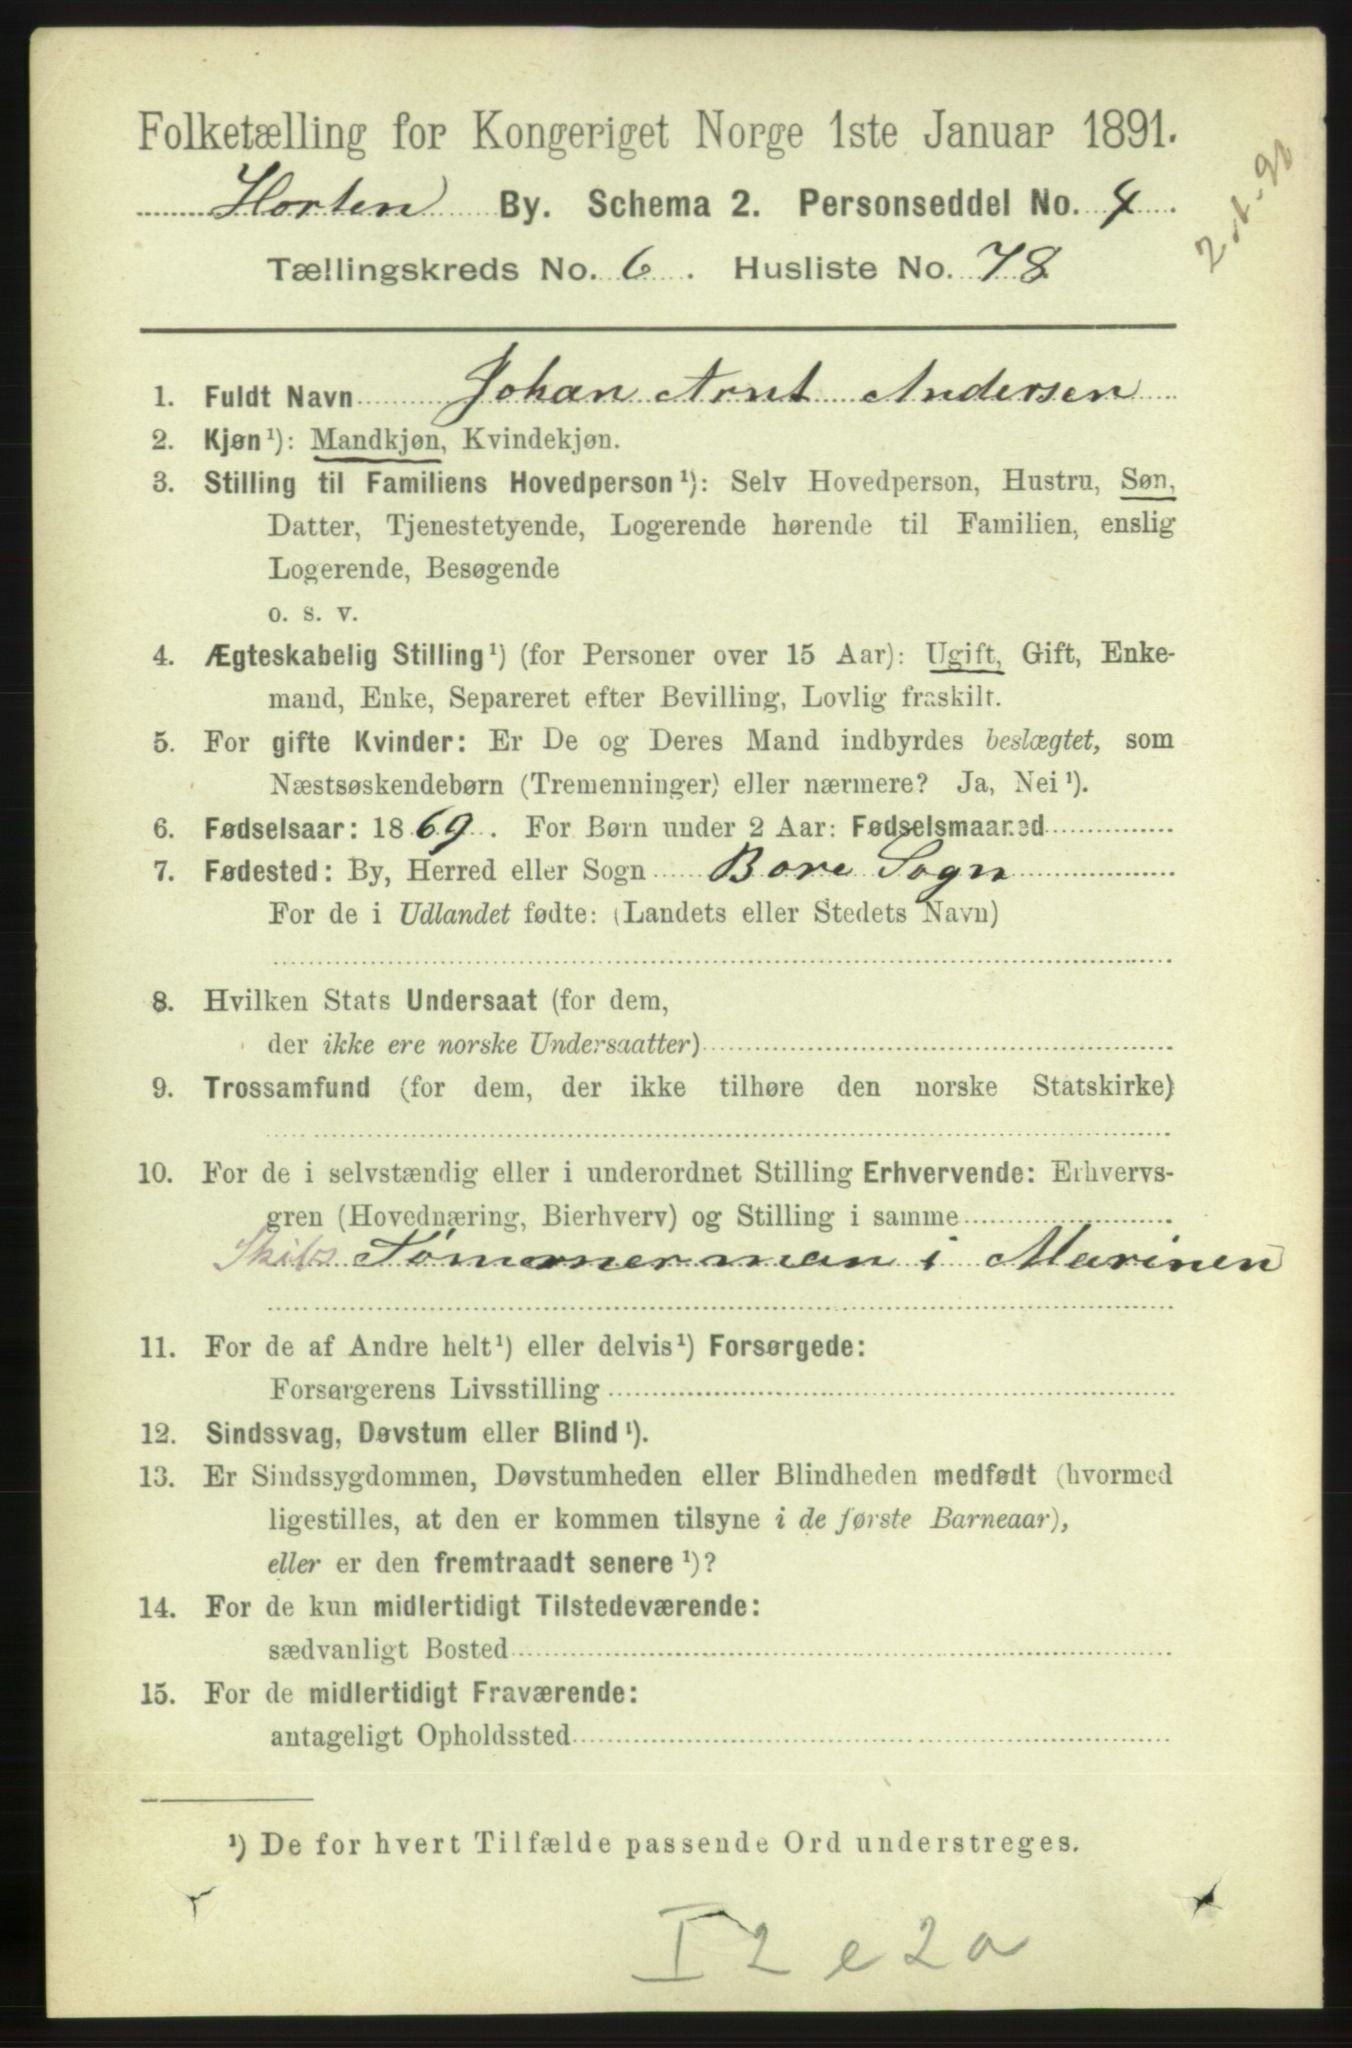 Folketælling for Kongeriget Norge 1ste Januar 1891.
Horten By. Schema 2. Personseddel No. 4.
Tællingskreds No. 6. Husliste No. 78
1. Fuldt Navn Johan Arnt Andersen
2. Kjøn¹): Mandkjøn, Kvindekjøn.
3. Stilling til Familiens Hovedperson¹): Selv Hovedperson, Hustru, Søn,
Datter, Tjenestetyende, Logerende hørende til Familien, enslig
Logerende, Besøgende
o. s. v.
4. Ægteskabelig Stilling¹) (for Personer over 15 Aar): Ugift, Gift, Enke-
mand, Enke, Separeret efter Bevilling, Lovlig fraskilt.
5. For gifte Kvinder: Er De og Deres Mand indbyrdes beslægtet, som
Næstsøskendebørn (Tremenninger) eller nærmere? Ja, Nei¹).
6. Fødselsaar: 1869. For Børn under 2 Aar: Fødselsmaaned
7. Fødested: By, Herred eller Sogn Bore Sogn
For de i Udlandet fødte: (Landets eller Stedets Navn)
8. Hvilken Stats Undersaat (for dem,
der ikke ere norske Undersaatter)
9. Trossamfund (for dem, der ikke tilhøre den norske Statskirke)
10. For de i selvstændig eller i underordnet Stilling Erhvervende: Erhvervs-
gren (Hovednæring, Bierhverv) og Stilling i samme
Skibs Tømmerman i Marinen
11. For de af Andre helt¹) eller delvis¹) Forsørgede:
Forsørgerens Livsstilling
12. Sindssvag, Døvstum eller Blind¹).
13. Er Sindssygdommen, Døvstumheden eller Blindheden medfødt (hvormed
ligestilles, at den er kommen tilsyne i de første Barneaar),
eller er den fremtraadt senere¹)?
14. For de kun midlertidigt Tilstedeværende:
sædvanligt Bosted
15. For de midlertidigt Fraværende:
antageligt Opholdssted
¹) De for hvert Tilfælde passende Ord understreges.
I 2 e 2 a